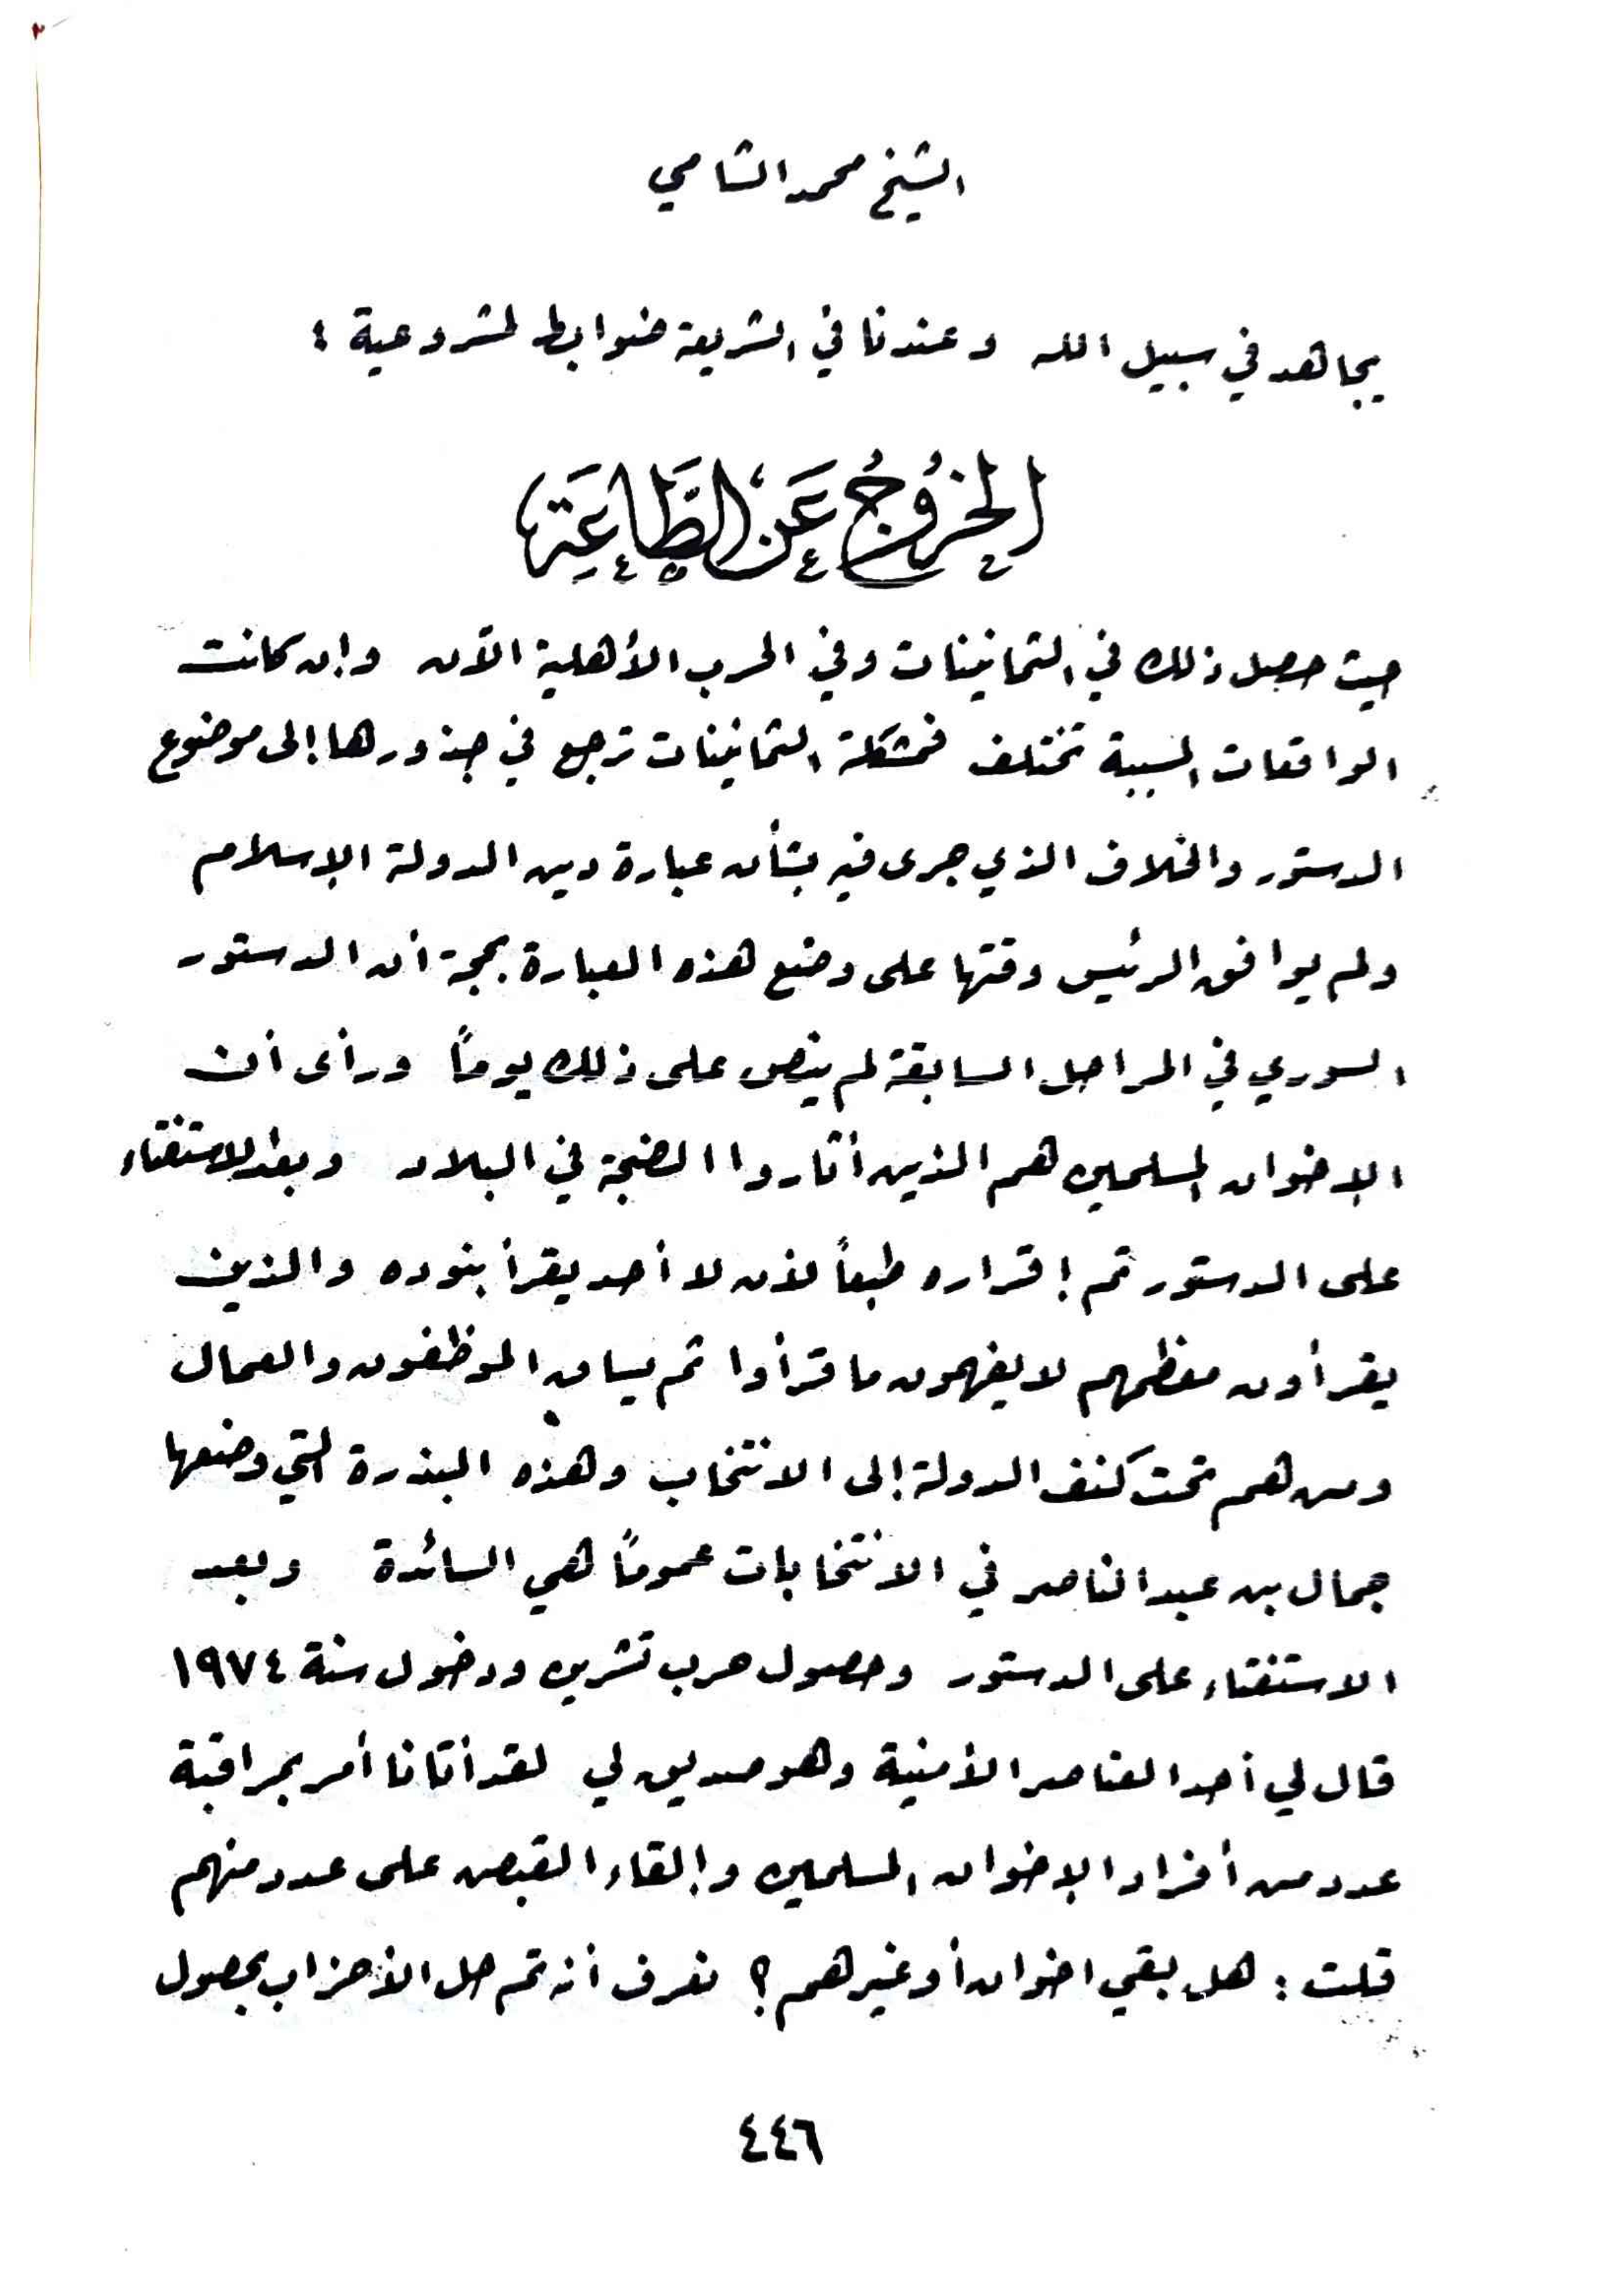 الشيخ محمد الشامي
يجاهد في سبيل الله وعندنا في الشريعة ضوابط لمشروعية :
الخُرُوجُ عَنِ الطَّاعَةِ
حيث حصل ذلك في الثمانينات وفي الحرب الأهلية الآن وإن كانت
الواقعات المسببة تختلف فمشكلة الثمانينات ترجع في جذورها إلى موضوع
الدستور والخلاف الذي جرى فيه بشأن عبارة دين الدولة الإسلام
ولم يوافق الرئيس وقتها على وضع هذه العبارة بحجة أن الدستور
السوري في المراحل السابقة لم ينص على ذلك يوماً ورأى أن
الإخوان المسلمين هم الذين أثاروا الضجة في البلاد وبعد الاستفتاء
على الدستور تم إقراره طبعاً لأن لا أحد يقرأ بنوده والذين
يقرأون معظمهم لا يفهمون ما قرأوا ثم يساق الموظفون والعمال
ومن هم تحت كنف الدولة إلى الانتخاب وهذه البذرة التي وضعها
جمال بن عبد الناصر في الانتخابات عموماً هي السائدة وبعد
الاستفتاء على الدستور وحصول حرب تشرين ودخول سنة ١٩٧٤
قال لي أحد العناصر الأمنية وهو صديق لي لقد أتانا أمر بمراقبة
عدد من أفراد الإخوان المسلمين وإلقاء القبض على عدد منهم
قلت : هل بقي اخوان أو غيرهم ؟ نعرف أنه تم حل الأحزاب بحصول
٤٤٦
٢